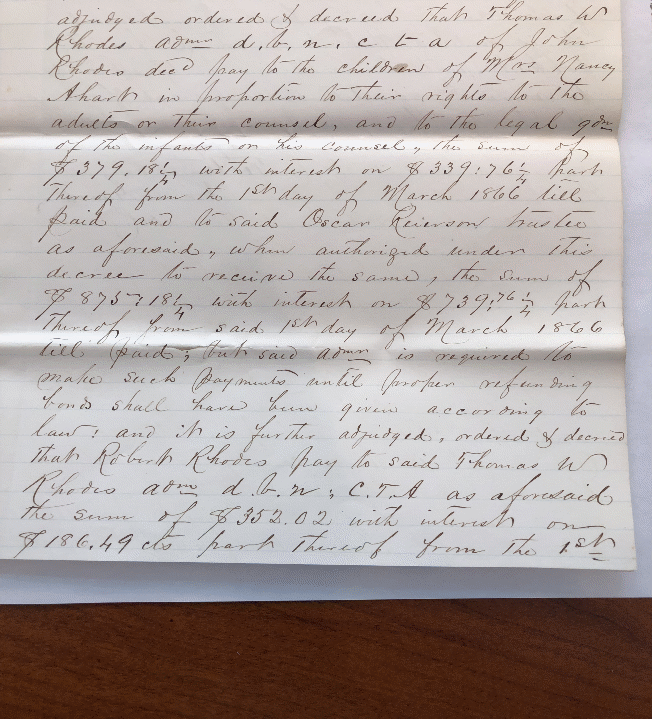 adjudged ordered & decreed that Thomas W
Rhodes admr d.b.n. c t a of John
Rhodes decd pay to the children of Mrs Nancy
Ahart in proportion to their rights to the
adults or their counsel, and to the legal gdn
of the infants or his counsel, the sum of
$379.18¼ with interest on $339.76¼ part
thereof from the 1st day of March 1866 till
paid and to said Oscar Reierson trustee
as aforesaid, when authorized under this
decree to receive the same, the sum of
$875.18¼ with interest on $739.76¼ part
thereof from said 1st day of March 1866
till paid; but said admr is required to
make such payments until proper refunding
bonds shall have been given according to
law: and it is further adjudged, ordered & decreed
that Robert Rhodes pay to said Thomas W
Rhodes admr d.b.n, C.T.A as aforesaid
the sum of $352.02 with interest on
$186.49 cts part thereof from the 1st